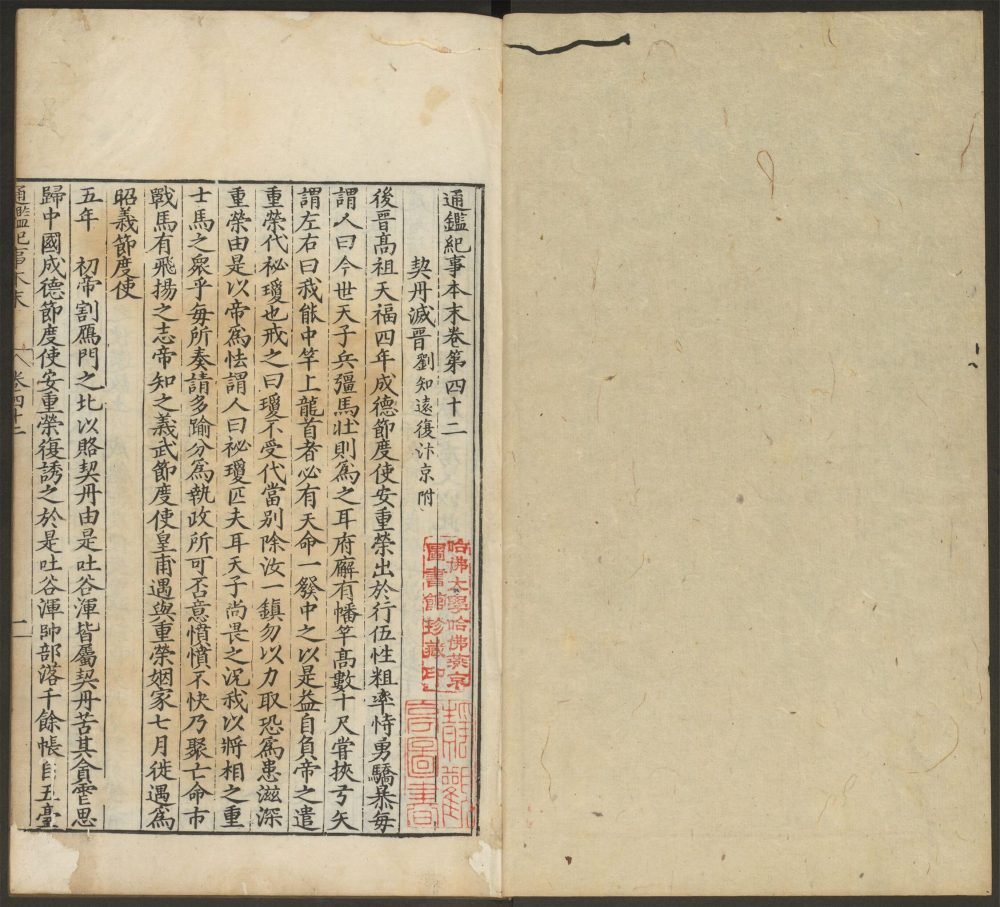 通鑑紀事本末卷第四十二
契丹滅晉 劉知遠復汴京附
後晉髙祖天福四年成德節度使安重榮出於行伍性粗率恃勇驕暴每
謂人曰今世天子兵彊馬壯則爲之耳府廨有幡竿髙數十尺嘗挾弓矢
謂左右曰我能中竿上龍首者必有天命一發中之以是益自負帝之遣
重榮代祕瓊也戒之曰瓊不受代當别除汝一鎮勿以力取恐爲患滋深
重榮由是以帝爲怯謂人曰祕瓊匹夫耳天子尚畏之況我以將相之重
士馬之衆乎每所奏請多踰分爲執政所可否意憤憤不快乃聚亡命市
戰馬有飛揚之志帝知之義武節度使皇甫遇與重榮姻家七月徙遇爲
昭義節度使
五年 初帝割鴈門之北以賂契丹由是吐谷渾皆屬契丹苦其貪虐思
歸中國成德節度使安重榮復誘之於是吐谷渾帥部落千餘帳自五臺
通鑑紀事本末 卷四十二 一
哈佛大學哈佛燕京
圖書館珍藏印